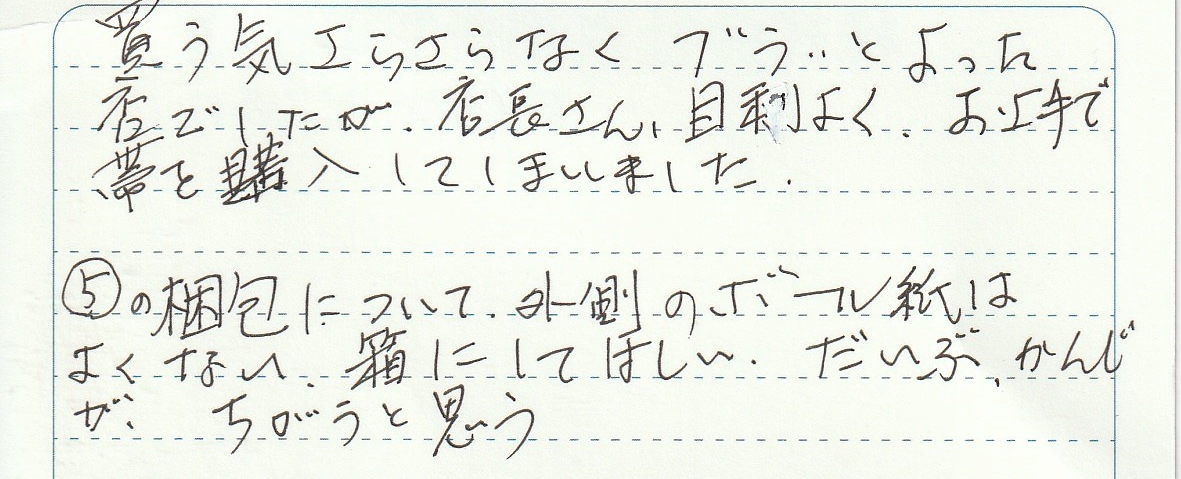 買う気さらさらなく ブラッとよった
店でしたが、店長さん、目利よく、お上手で
帯を購入してしまいました。
⑤の梱包について、外側のボール紙は
よくない、箱にしてほしい。だいぶ、かんじ
が、ちがうと思う